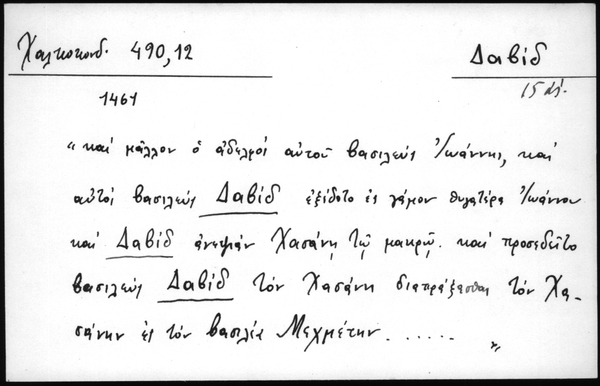 Χαλκοκονδ. 490,12
Δαβίδ
15 αἰ.
1461
"καὶ μᾶλλον ὁ ἀδελφὸς αὐτοῦ βασιλεὺς Ἰωάννης, καὶ
αὐτὸς βασιλεὺς Δαβίδ ἐξέδοτο ἐς γάμον θυγατέρα Ἰωάννου
καὶ Δαβίδ ἀνεψιὰν Χασάνῃ τῷ μακρῷ. καὶ προσεδεῖτο
βασιλεὺς Δαβίδ τὸν Χασάνη διαπράξασθαι τὸν Χα-
σάνην ἐς τὸν βασιλέα Μεχμέτην......"